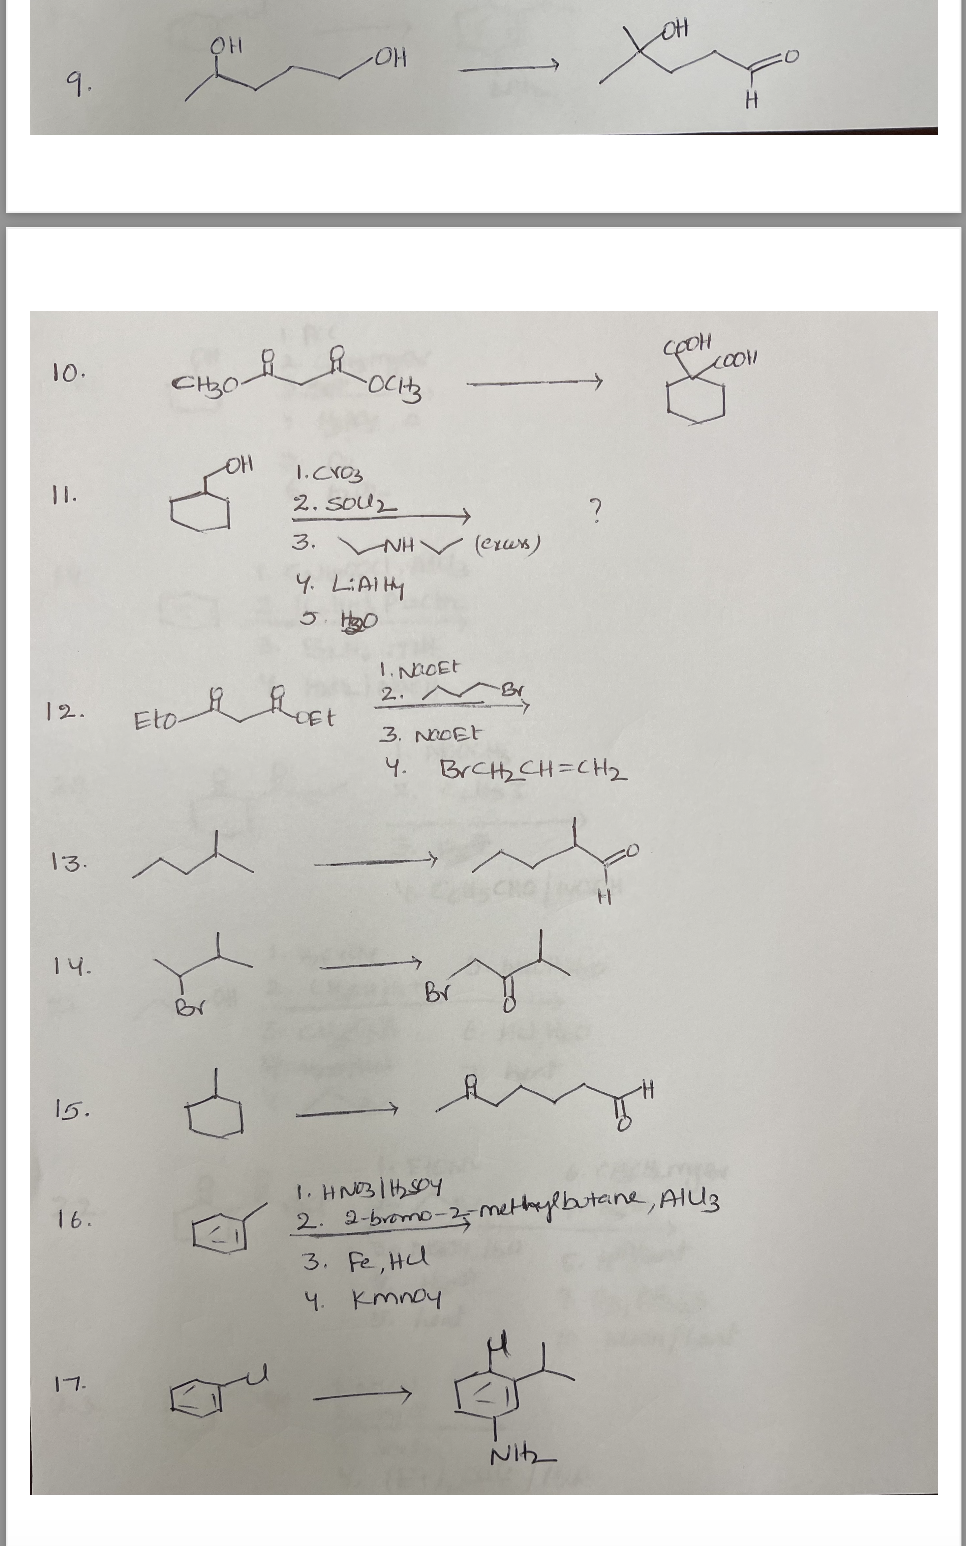 9.
OH
OH
OH
O
H
10.
CH3O
O
O
OCH3
COOH
COOH
11.
OH
1. CrO3
2. SOCl2
3. NH (excess)
4. LiAlH4
5. H2O
?
12.
EtO
O
O
OEt
1. NaOEt
2. Br
3. NaOEt
4. BrCH2CH=CH2
13.
O
H
14.
Br
Br
O
15.
O
H
O
16.
1. HNO3/H2SO4
2. 2-bromo-2-methylbutane, AlCl3
3. Fe, HCl
4. KmnO4
17.
Cl
Cl
NH2